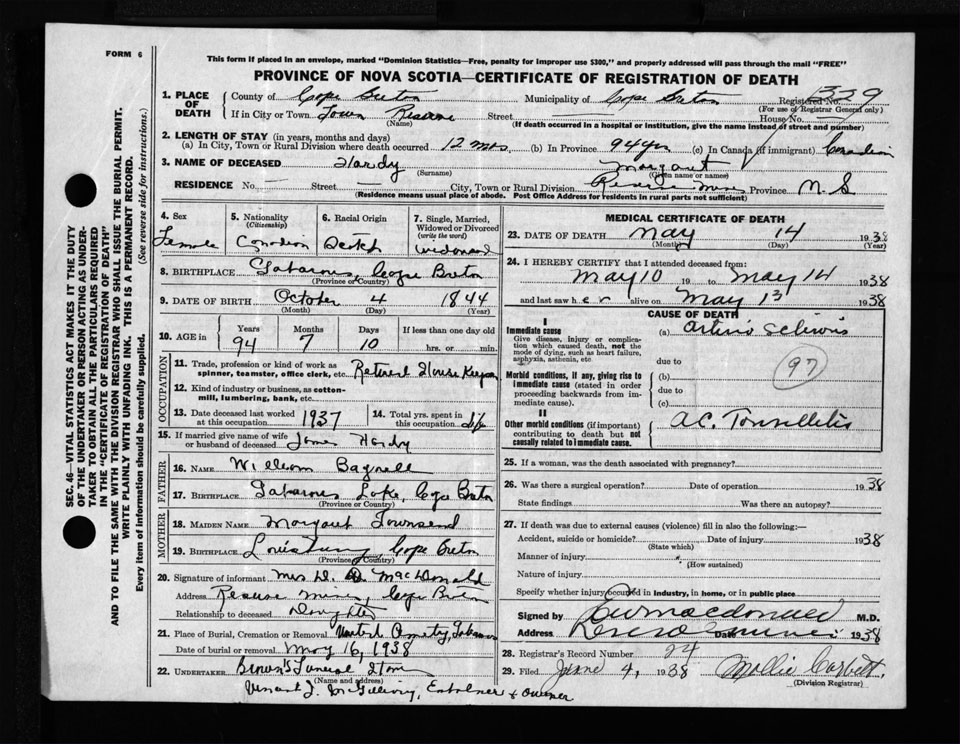 FORM 6
This form if placed in an envelope, marked "Dominion Statistics—Free, penalty for improper use $300," and properly addressed will pass through the mail "FREE"
PROVINCE OF NOVA SCOTIA—CERTIFICATE OF REGISTRATION OF DEATH
SEC. 46—VITAL STATISTICS ACT MAKES IT THE DUTY
OF THE UNDERTAKER OR PERSON ACTING AS UNDER-
TAKER TO OBTAIN ALL THE PARTICULARS REQUIRED
IN THE "CERTIFICATE OF REGISTRATION OF DEATH"
AND TO FILE THE SAME WITH THE DIVISION REGISTRAR WHO SHALL ISSUE THE BURIAL PERMIT.
WRITE PLAINLY WITH UNFADING INK. THIS IS A PERMANENT RECORD.
Every item of information should be carefully supplied. (See reverse side for instructions.)
1. PLACE OF DEATH
County of Cape Breton Municipality of Cape Breton Registered No. 1329
(For use of Registrar General only)
If in City or Town Town Reserve Street House No.
(Name) (If death occurred in a hospital or institution, give the name instead of street and number)
2. LENGTH OF STAY (in years, months and days)
(a) In City, Town or Rural Division where death occurred 12 mos (b) In Province 94 yrs (c) In Canada (if immigrant) Canadian
3. NAME OF DECEASED Hardy Margaret
(Surname) (Given name or names)
RESIDENCE No. Street City, Town or Rural Division Reserve Mines Province N. S
(Residence means usual place of abode. Post Office Address for residents in rural parts not sufficient)
4. Sex 5. Nationality (Citizenship) 6. Racial Origin 7. Single, Married, Widowed or Divorced (write the word)
Female Canadian Scotch Widowed
8. BIRTHPLACE Gabarous, Cape Breton
(Province or Country)
9. DATE OF BIRTH October 4 1844
(Month) (Day) (Year)
10. AGE in Years Months Days If less than one day old
94 7 10 hrs. or min.
OCCUPATION
11. Trade, profession or kind of work as spinner, teamster, office clerk, etc. Retired House Keeper
12. Kind of industry or business, as cotton-mill, lumbering, bank, etc.
13. Date deceased last worked at this occupation 1937 14. Total yrs. spent in this occupation life
15. If married give name of wife or husband of deceased James Hardy
FATHER
16. NAME William Bagnell
17. BIRTHPLACE Gabarous Lake, Cape Breton
(Province or Country)
MOTHER
18. MAIDEN NAME Margaret Townsend
19. BIRTHPLACE Louisburg, Cape Breton
(Province or Country)
20. Signature of informant Mrs D. D. MacDonald
Address Reserve Mines, Cape Breton
Relationship to deceased Daughter
21. Place of Burial, Cremation or Removal
Date of burial or removal May 16, 1938
22. UNDERTAKER Brown's Funeral
(Name and address)
Vincent J. McGillivray, & Owner
MEDICAL CERTIFICATE OF DEATH
23. DATE OF DEATH May 14 1938
(Month) (Day) (Year)
24. I HEREBY CERTIFY that I attended deceased from:
May 10 19 to May 14 1938
and last saw her alive on May 13 1938
CAUSE OF DEATH
I
Immediate cause (a) Arterio Sclerosis
Give disease, injury or complication which caused death, not the mode of dying, such as heart failure, asphyxia, asthenia, etc.
due to
97
Morbid conditions, if any, giving rise to immediate cause (stated in order proceeding backwards from immediate cause).
(b)
due to
(c)
II
Other morbid conditions (if important) contributing to death but not causally related to immediate cause. A.C. Tonsillitis
25. If a woman, was the death associated with pregnancy?
26. Was there a surgical operation? Date of operation 1938
State findings Was there an autopsy?
27. If death was due to external causes (violence) fill in also the following:—
Accident, suicide or homicide? Date of injury 1938
(State which)
Manner of injury
(How sustained)
Nature of injury
Specify whether injury occurred in industry, in home, or in public place
Signed by MacDonald M.D.
Address Reserve Mines Date 1938
28. Registrar's Record Number 24
29. Filed June 4, 1938 Millie Corbett,
(Division Registrar)